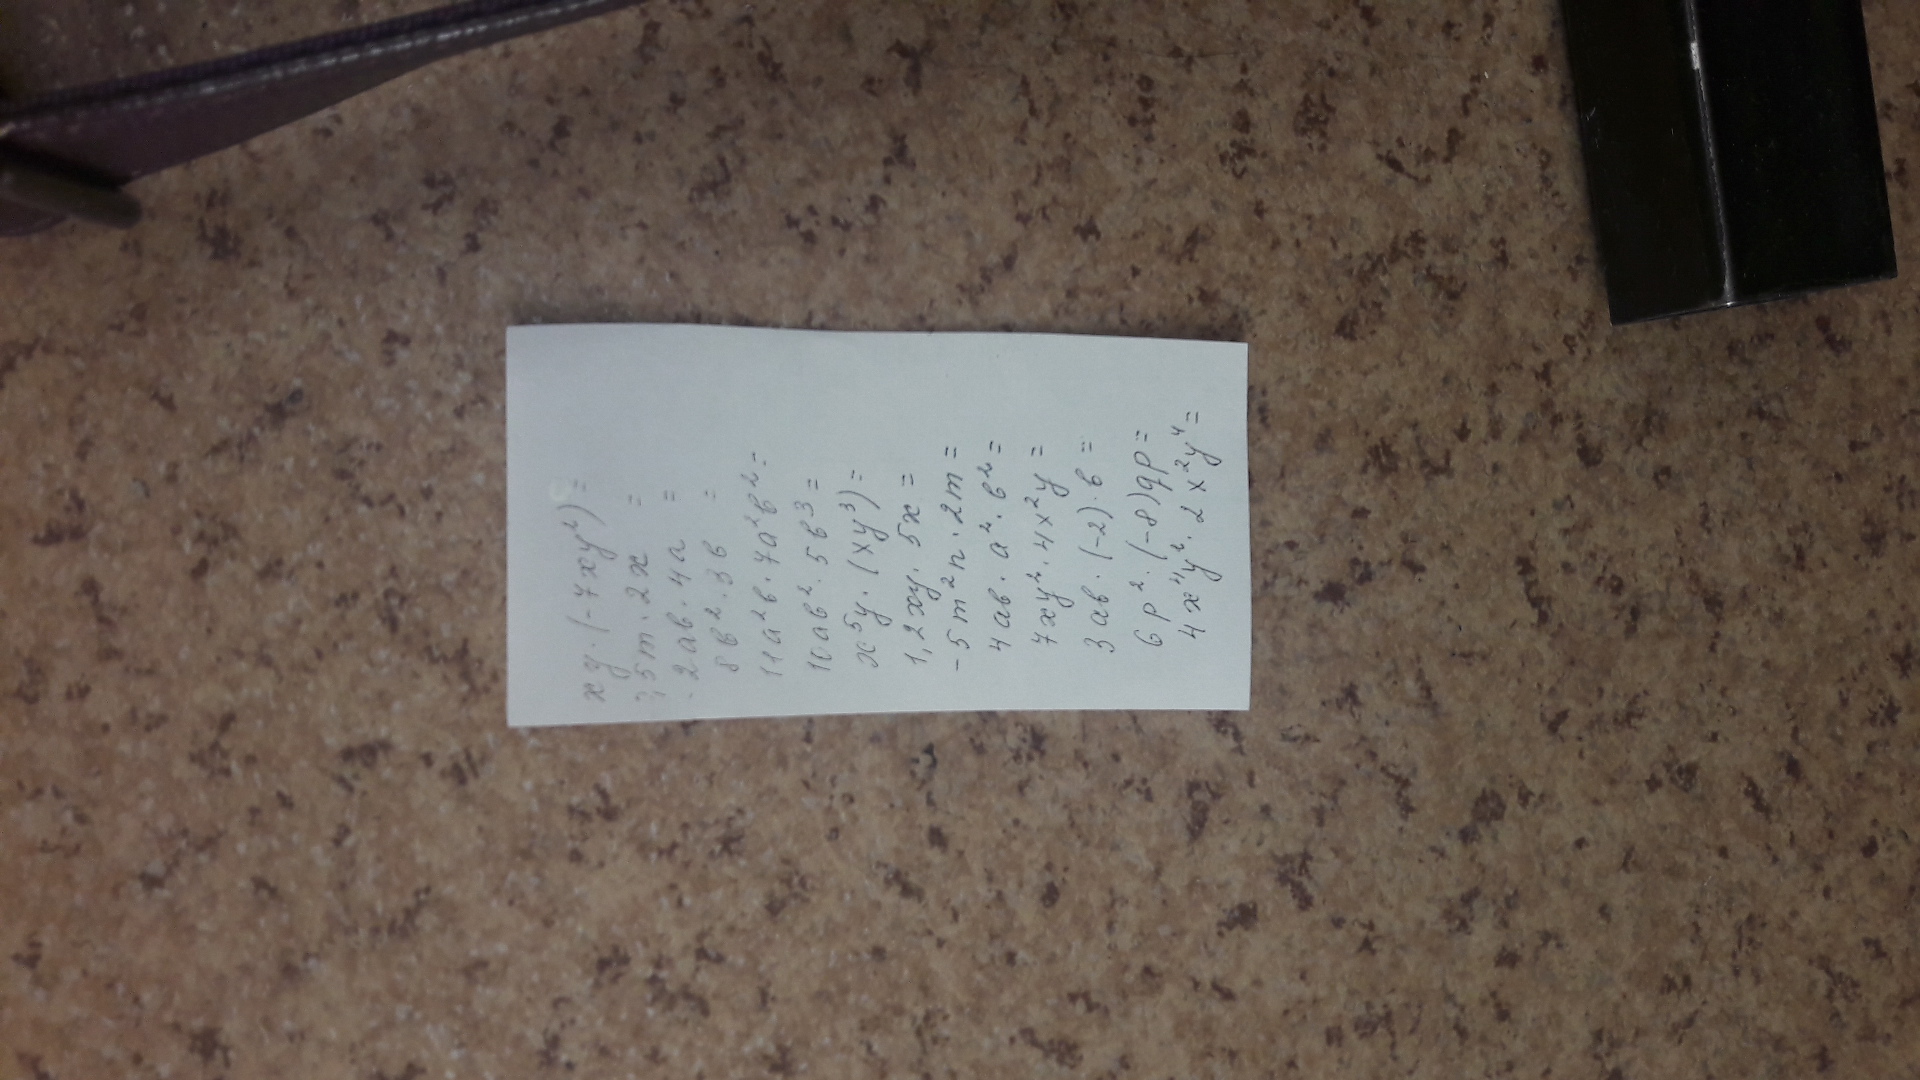 xy·(-7xy²)=
5m·2x =
2ab·4a =
8b²·3b =
11a²b·7a²b²=
10ab²·5b³=
x⁵y·(xy³)=
1,2xy·5x =
-5m²n·2m=
4ab·a²·b²=
7xy²·4x²y=
3ab·(-2)·b =
6p²·(-8)qp=
4x⁴y²·2x²y⁴=